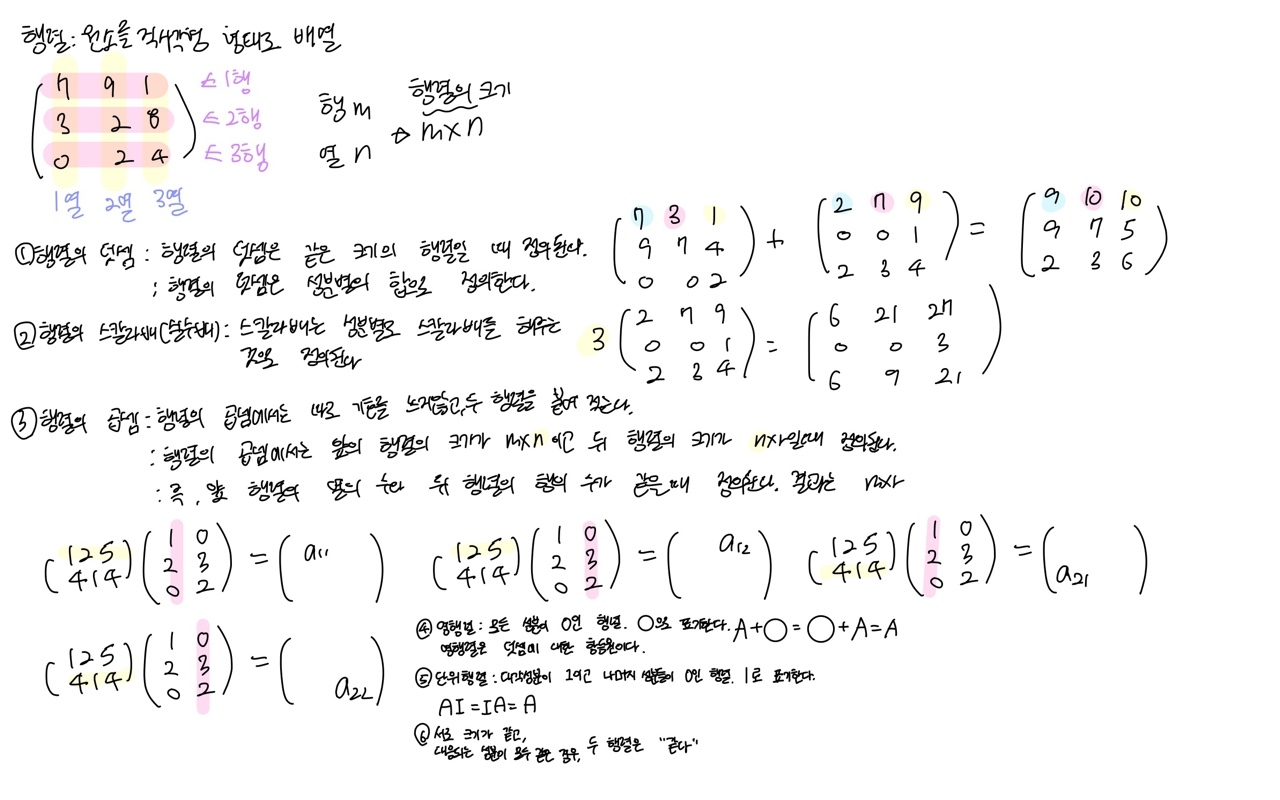 행렬: 원소를 직사각형 형태로 배열
7 9 1 ← 1행
3 2 8 ← 2행
0 2 4 ← 3행
1열 2열 3열
행 m
열 n
행렬의 크기
→ m×n
① 행렬의 덧셈 : 행렬의 덧셈은 같은 크기의 행렬일 때 정의된다.
; 행렬의 덧셈은 성분별의 합으로 정의한다.
(7 3 1) + (2 7 9) = (9 10 10)
(9 7 4) (0 0 1) (9 7 5)
(0 0 2) (2 3 4) (2 3 6)
② 행렬의 스칼라배(실수배) : 스칼라배는 성분별로 스칼라배를 해주는
것으로 정의된다
3 (2 7 9) = (6 21 27)
(0 0 1) (0 0 3)
(2 3 4) (6 9 21)
③ 행렬의 곱셈 : 행렬의 곱셈에서는 따로 기호를 쓰지않고, 두 행렬을 붙여 적는다.
: 행렬의 곱셈에서는 앞의 행렬의 크기가 m×n 이고 뒤 행렬의 크기가 n×r일때 정의된다.
: 즉, 앞 행렬의 열의 수와 뒤 행렬의 행의 수가 같을 때 정의한다. 결과는 m×r
(1 2 5) (1 0) = (a11 )
(4 1 4) (2 3)
(0 2)
(1 2 5) (1 0) = ( a12)
(4 1 4) (2 3)
(0 2)
(1 2 5) (1 0) = ( )
(4 1 4) (2 3) (a21 )
(0 2)
(1 2 5) (1 0) = ( )
(4 1 4) (2 3)
(0 2) ( a22)
④ 영행렬 : 모든 성분이 0인 행렬. O으로 표기한다. A+O=O+A=A
영행렬은 덧셈에 대한 항등원이다.
⑤ 단위행렬 : 대각성분이 1이고 나머지 성분들이 0인 행렬. I로 표기한다.
AI=IA=A
⑥ 서로 크기가 같고,
대응되는 성분이 모두 같은 경우, 두 행렬은 "같다"